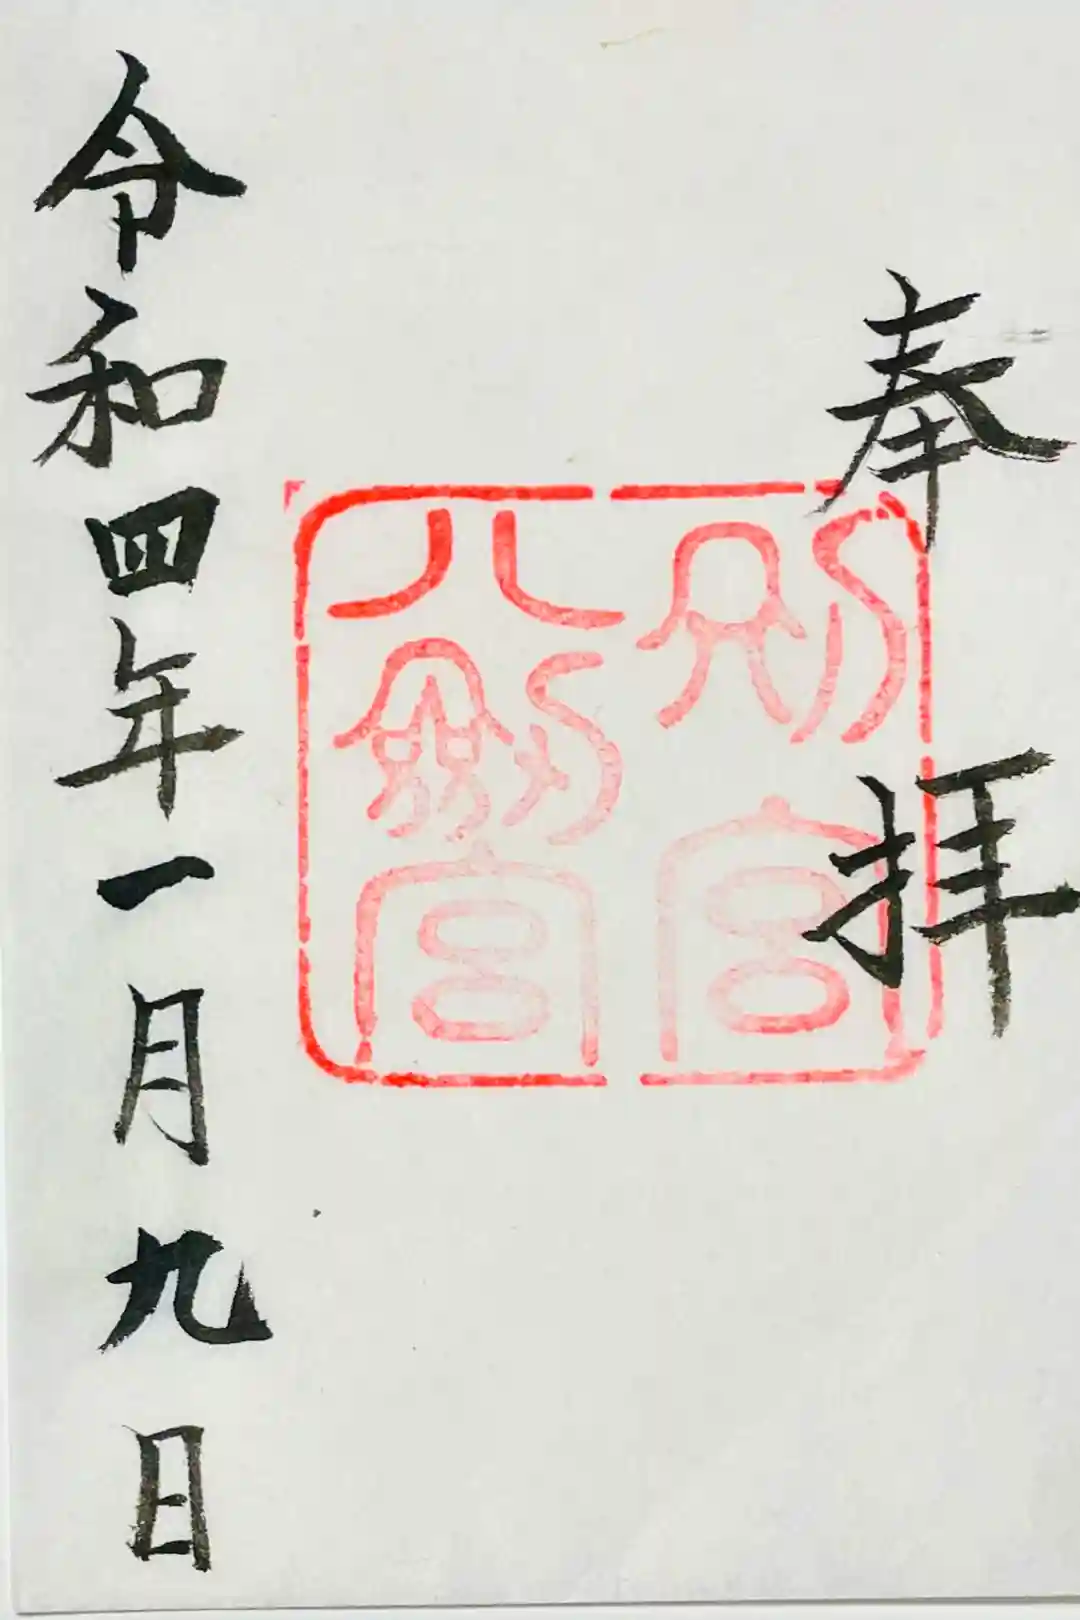 奉拝
別宮
八劔宮
令和四年一月九日